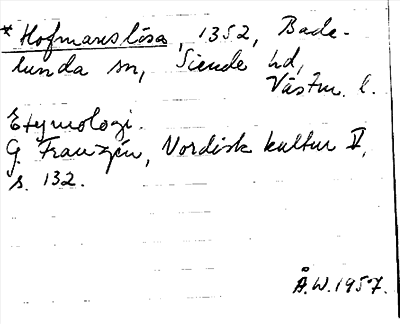 * Hofmanslösa, 1352, Bade-
lunda sn, Siende hd,
Västm. l.
Etymologi.
G. Franzén, Nordisk kultur V,
s. 132.
Å.W. 1957.